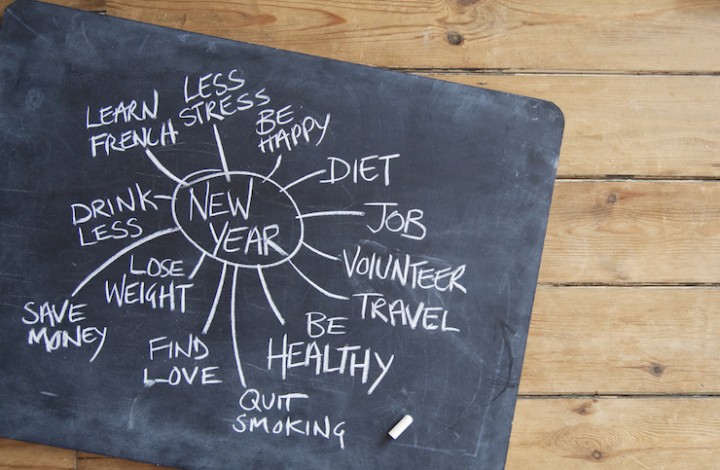 NEW
YEAR
LESS
STRESS
BE
HAPPY
DIET
JOB
VOLUNTEER
TRAVEL
BE
HEALTHY
QUIT
SMOKING
FIND
LOVE
LOSE
WEIGHT
SAVE
MONEY
DRINK
LESS
LEARN
FRENCH